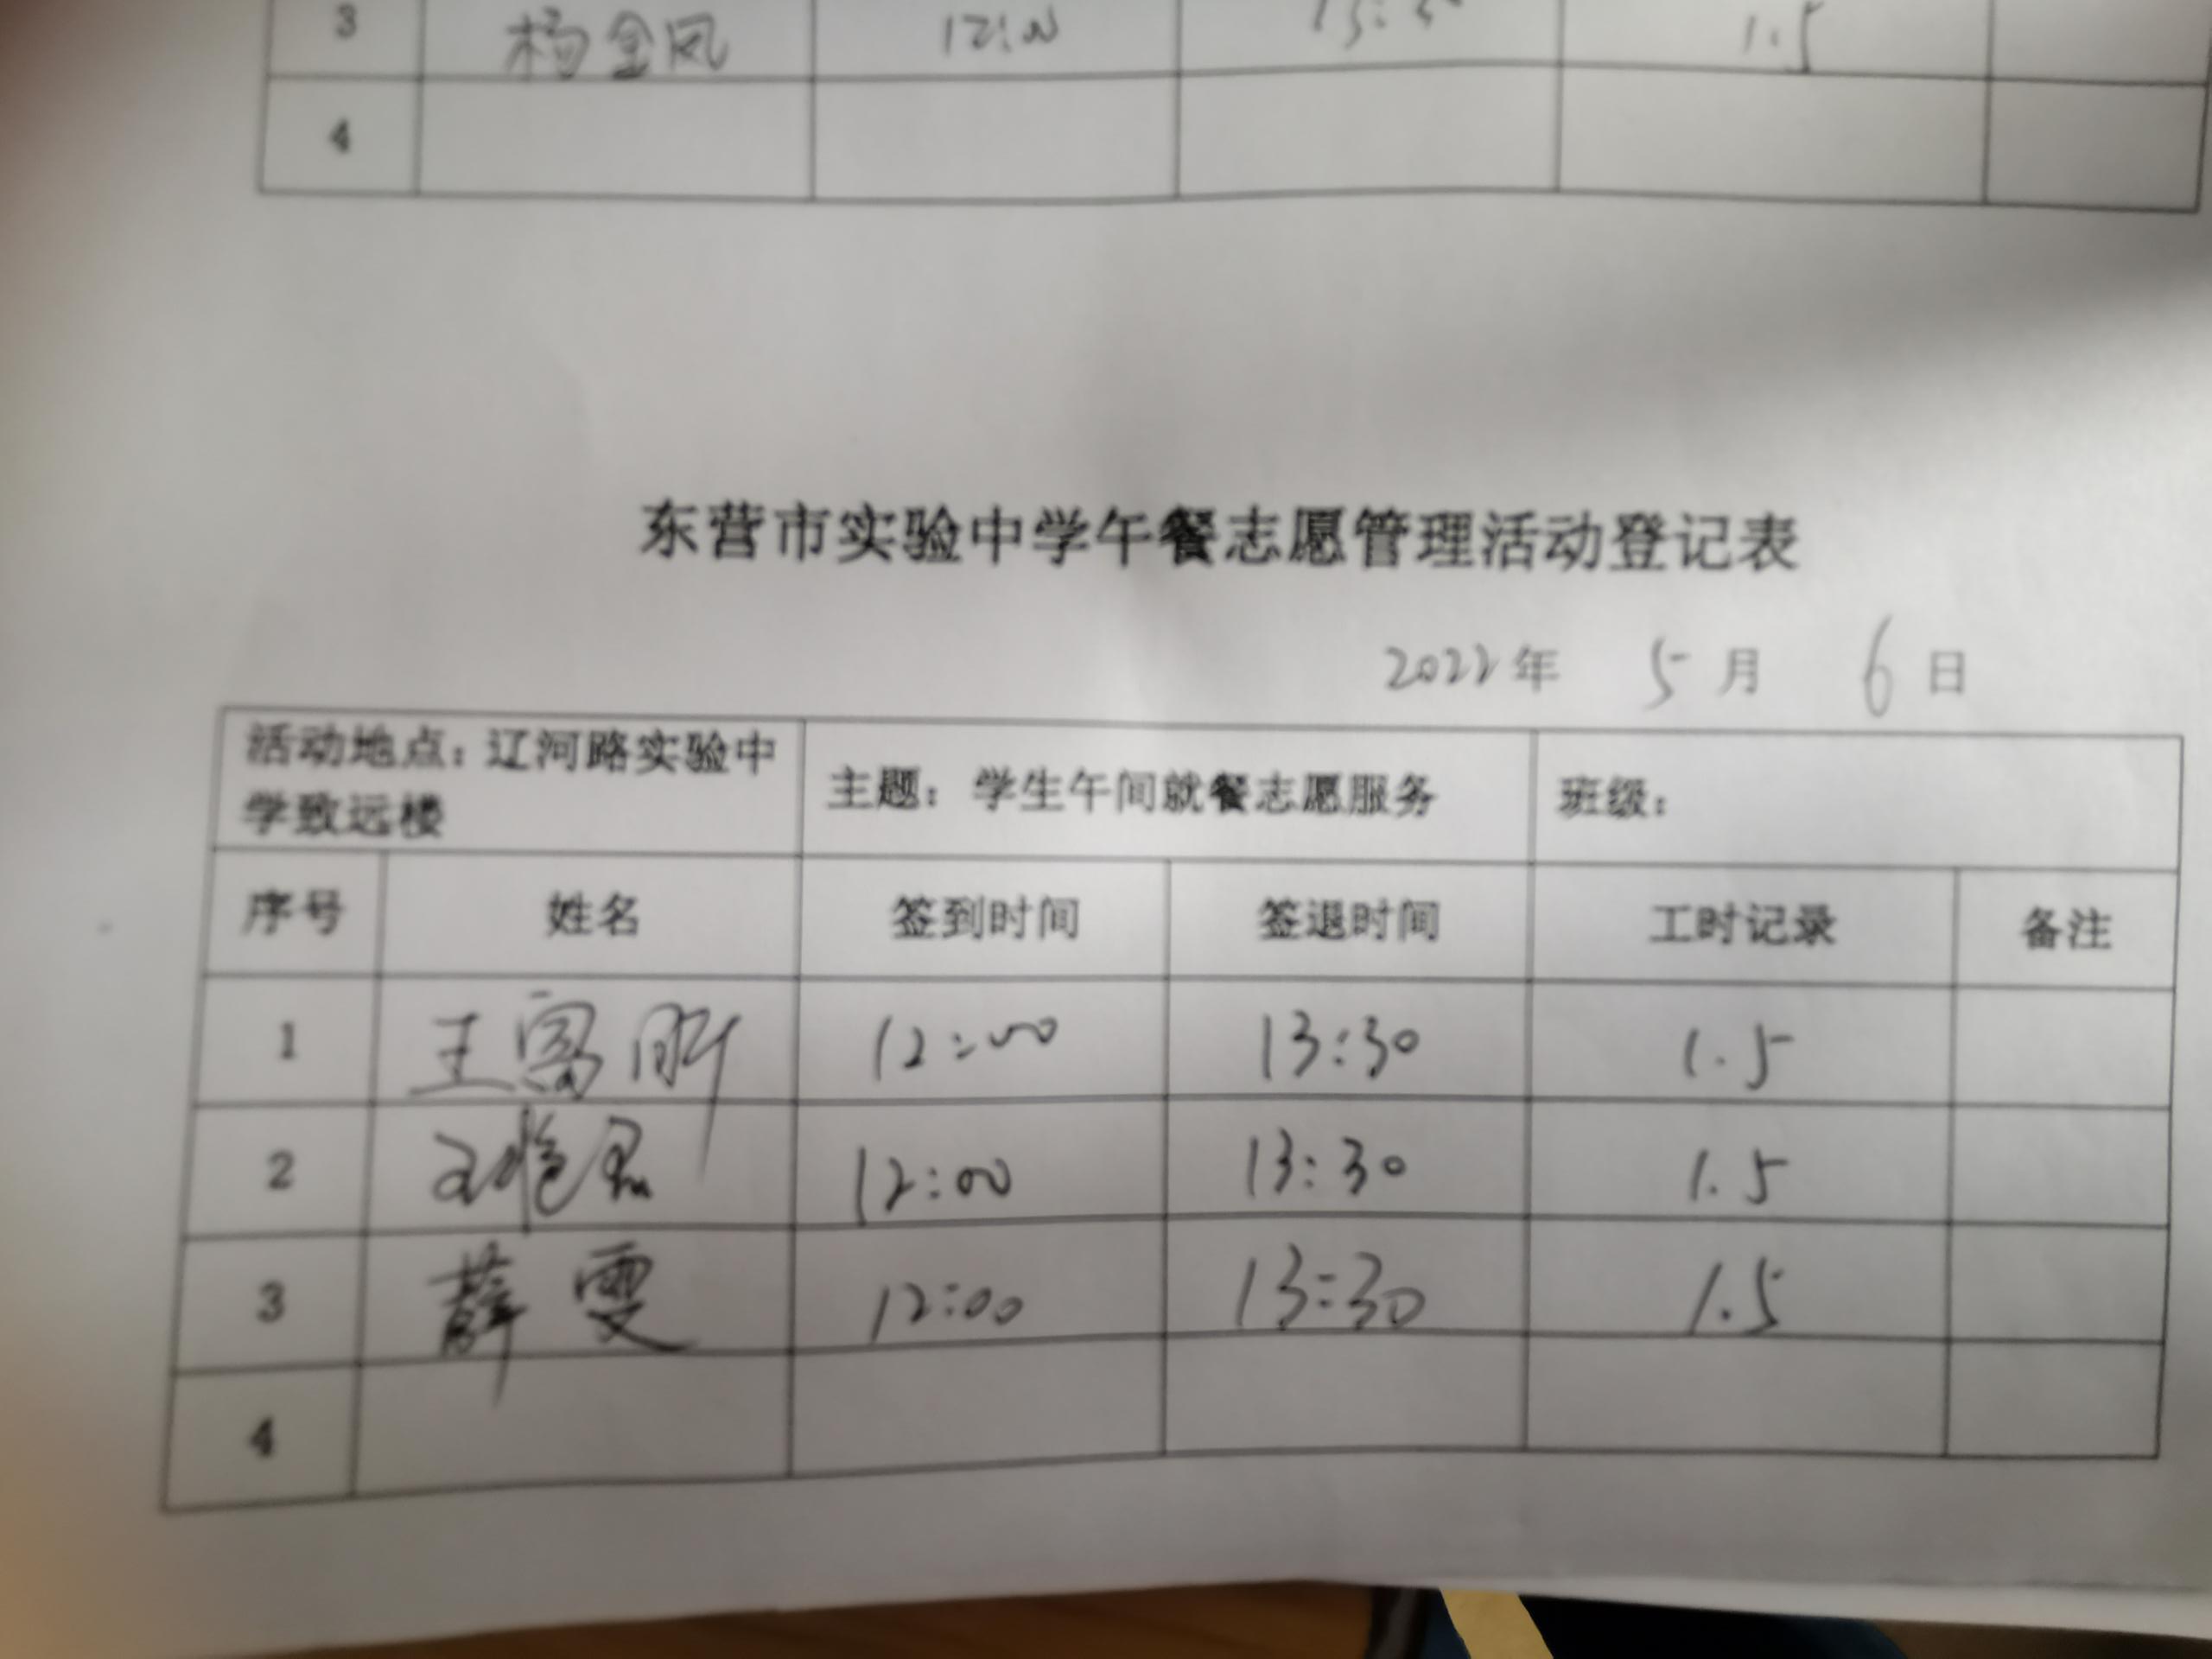 3 杨金凤 12:00 1.5
4
东营市实验中学午餐志愿管理活动登记表
2022年 5月 6日
活动地点：辽河路实验中 主题：学生午间就餐志愿服务 班级：
学致远楼
序号 姓名 签到时间 签退时间 工时记录 备注
1 王 12:00 13:30 1.5
2 12:00 13:30 1.5
3 薛雯 12:00 13:30 1.5
4